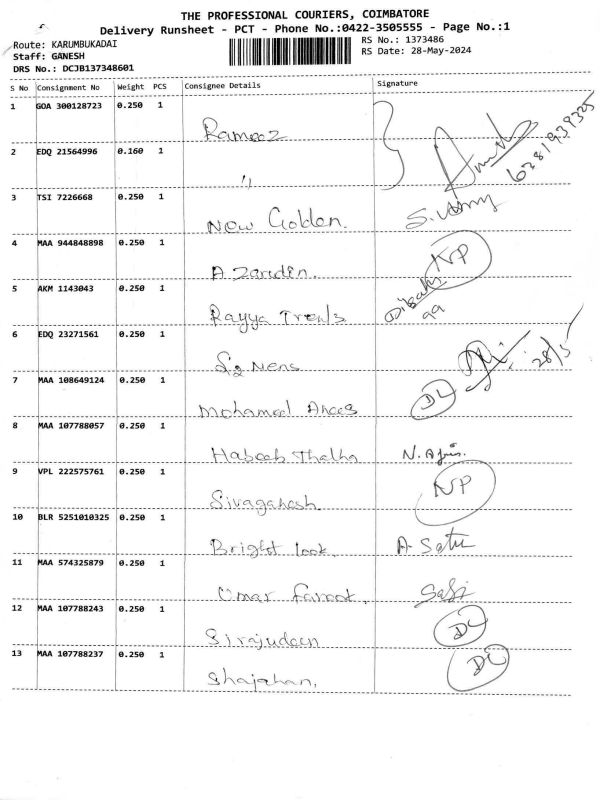 THE PROFESSIONAL COURIERS, COIMBATORE
Delivery Runsheet - PCT - Phone No.:0422-3505555 - Page No.:1
Route: KARUMBUKADAI
RS No.: 1373486
Staff: GANESH
RS Date: 28-May-2024
DRS No.: DCJB137348601
S No Consignment No Weight PCS Consignee Details Signature
1 GOA 300128723 0.250 1 Rameez
6281939325
2 EDQ 21564996 0.160 1 "
3 TSI 7226668 0.250 1 New Golden.
4 MAA 944848898 0.250 1 A Zarudin. NP
5 AKM 1143043 0.250 1 Rayya Trends 99
6 EDQ 23271561 0.250 1 Mens 28/5
7 MAA 108649124 0.250 1 Mohamed DL
8 MAA 107788057 0.250 1 Habeeb Thalha
9 VPL 222575761 0.250 1 Sivaganesh NP
10 BLR 5251010325 0.250 1 Bright look.
11 MAA 574325879 0.250 1 Umar Farook.
12 MAA 107788243 0.250 1 Sirajudeen DL
13 MAA 107788237 0.250 1 Shajahan. DL